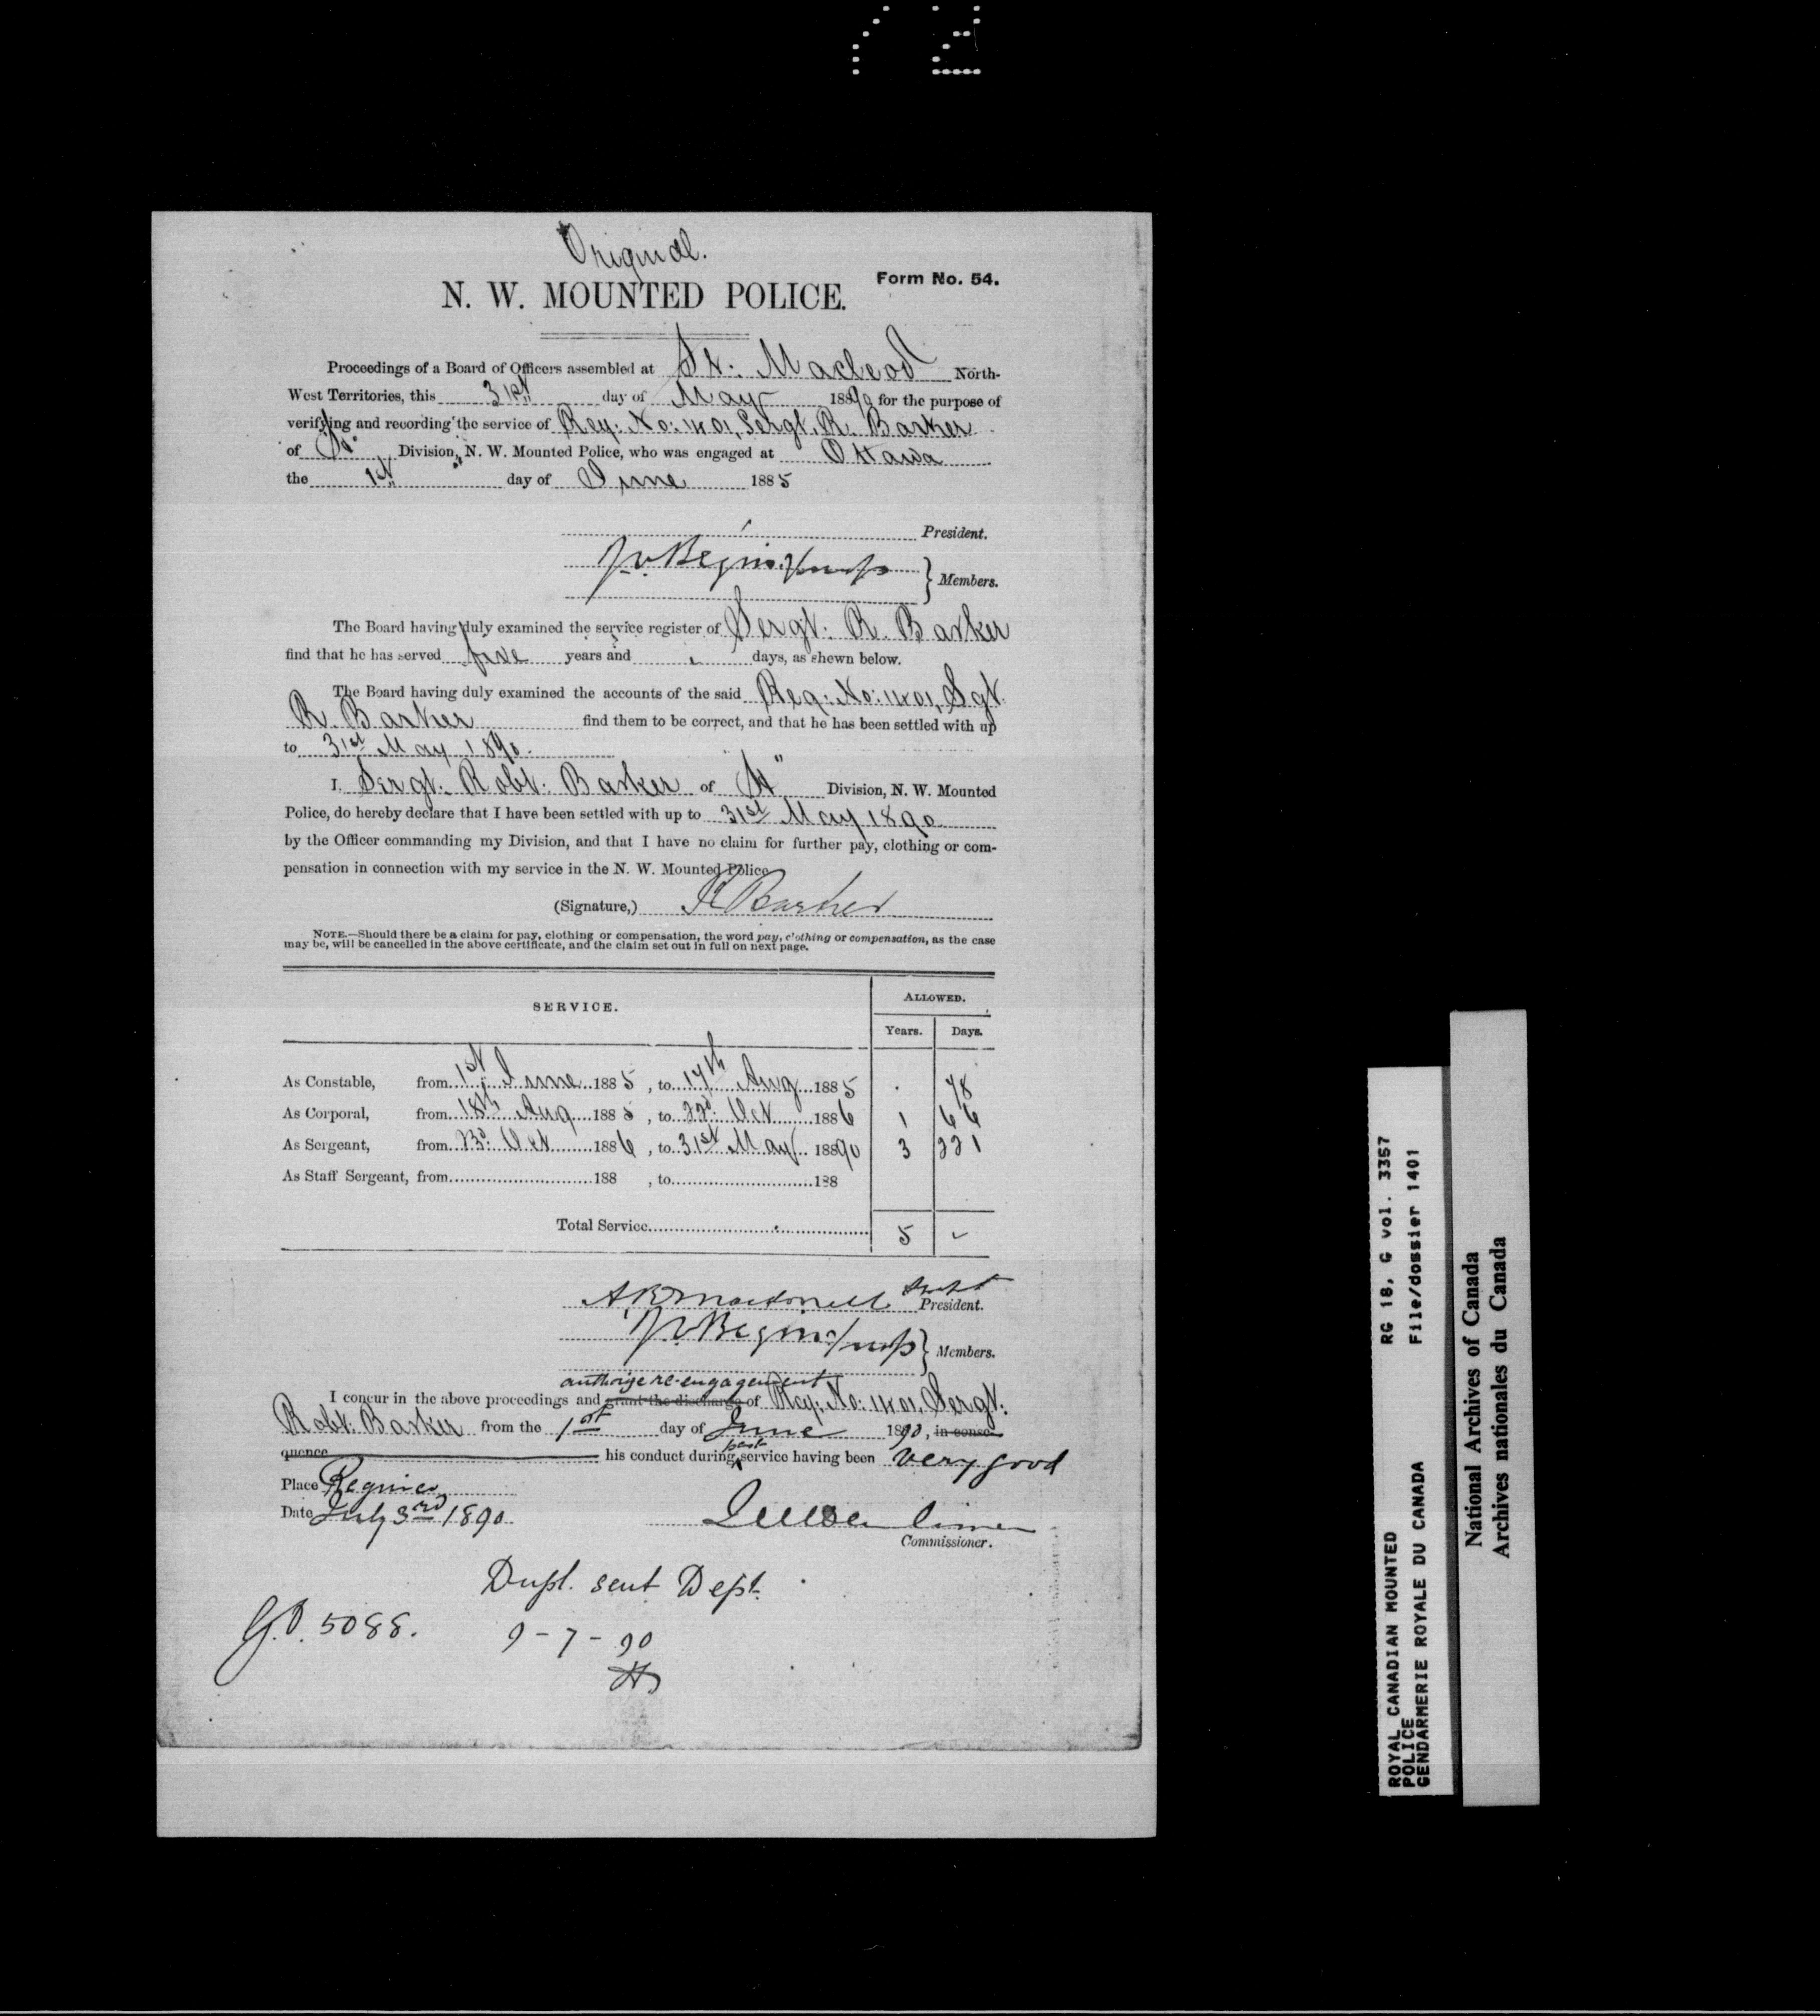 Original.
Form No. 54.
N. W. MOUNTED POLICE.
Proceedings of a Board of Officers assembled at Ft: Macleod North-
West Territories, this 31st day of May 1890 for the purpose of
verifying and recording the service of Reg: No: 1401, Sergt. R. Barker
of "H" Division, N. W. Mounted Police, who was engaged at Ottawa
the 1st day of June 1885
President.
J.V. Begin Insp
Members.
The Board having duly examined the service register of Sergt: R. Barker
find that he has served five years and days, as shewn below.
The Board having duly examined the accounts of the said Reg: No: 1401, Sgt.
R. Barker find them to be correct, and that he has been settled with up
to 31st May 1890.
I, Sergt. Robt: Barker of "H" Division, N. W. Mounted
Police, do hereby declare that I have been settled with up to 31st May 1890
by the Officer commanding my Division, and that I have no claim for further pay, clothing or com-
pensation in connection with my service in the N. W. Mounted Police
(Signature,) R Barker
NOTE.—Should there be a claim for pay, clothing or compensation, the word pay, clothing or compensation, as the case
may be, will be cancelled in the above certificate, and the claim set out in full on next page.
SERVICE. ALLOWED.
Years. Days.
As Constable, from 1st June 1885, to 17th Aug 1885 . 78
As Corporal, from 18th Aug 1885, to 22d. Oct 1886 1 66
As Sergeant, from 23d. Oct 1886, to 31st May 1890 3 221
As Staff Sergeant, from 188 , to 188
Total Service 5
A R Macdonell Supt
President.
J.V. Begin Insp
Members.
authorize re-engagement
I concur in the above proceedings and grant the discharge of Reg: No: 1401, Sergt:
Robt: Barker from the 1st day of June 1890, in conse-
quence his conduct during past service having been very good
Place Regina
Date July 3rd 1890.
Commissioner.
Dupl. sent Dept.
G.O. 5088.
9-7-90
ROYAL CANADIAN MOUNTED RG 18, G vol. 3357
POLICE
GENDARMERIE ROYALE DU CANADA File/dossier 1401
National Archives of Canada
Archives nationales du Canada